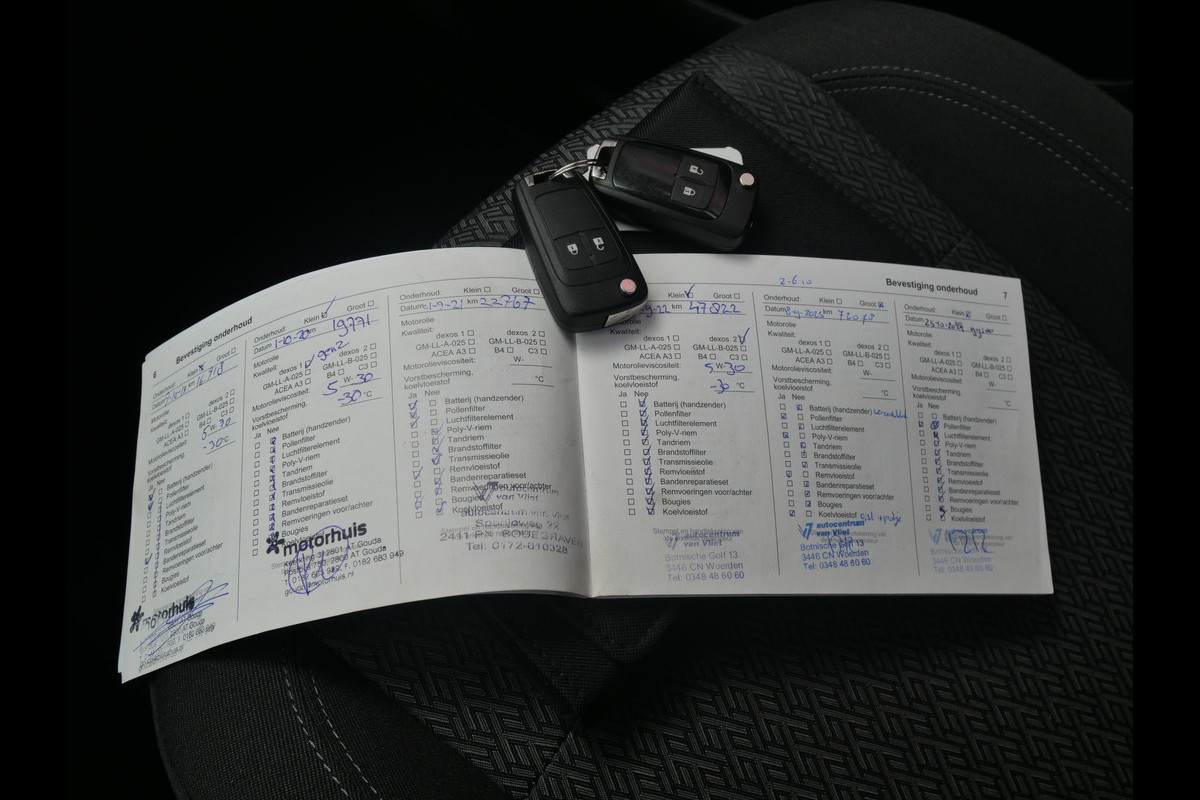 6
Bevestiging onderhoud
Onderhoud: Klein Groot
Datum km
Motorolie
Kwaliteit:
dexos 1 dexos 2
GM-LL-A-025 GM-LL-B-025
ACEA A3 B4 C3
Motorolieviscositeit: 5 W- 30
Vorstbescherming,
koelvloeistof -30 °C
Ja Nee
Batterij (handzender)
Pollenfilter
Luchtfilterelement
Poly-V-riem
Tandriem
Brandstoffilter
Transmissieolie
Remvloeistof
Bandenreparatieset
Remvoeringen voor/achter
Bougies
Koelvloeistof
motorhuis
Onderhoud: Klein Groot
Datum 1-10-20 km 19771
Motorolie
Kwaliteit:
dexos 1 gen2 dexos 2
GM-LL-A-025 GM-LL-B-025
ACEA A3 B4 C3
Motorolieviscositeit: 5 W- 30
Vorstbescherming,
koelvloeistof -30 °C
Ja Nee
Batterij (handzender)
Pollenfilter
Luchtfilterelement
Poly-V-riem
Tandriem
Brandstoffilter
Transmissieolie
Remvloeistof
Bandenreparatieset
Remvoeringen voor/achter
Bougies
Koelvloeistof
motorhuis
2801 AT Gouda
2800 AT Gouda
F. 0182 683 949
Onderhoud: Klein Groot
Datum 1-9-21 km 22767
Motorolie
Kwaliteit:
dexos 1 dexos 2
GM-LL-A-025 GM-LL-B-025
ACEA A3 B4 C3
Motorolieviscositeit: W-
Vorstbescherming,
koelvloeistof °C
Ja Nee
Batterij (handzender)
Pollenfilter
Luchtfilterelement
Poly-V-riem
Tandriem
Brandstoffilter
Transmissieolie
Remvloeistof
Bandenreparatieset
Remvoeringen voor/achter
Bougies
Koelvloeistof
van Vliet
Tel: 0172-610328
Klein Groot
9-22 km 47822
Motorolie
Kwaliteit:
dexos 1 dexos 2
GM-LL-A-025 GM-LL-B-025
ACEA A3 B4 C3
Motorolieviscositeit: 5 W- 30
Vorstbescherming,
koelvloeistof -30 °C
Ja Nee
Batterij (handzender)
Pollenfilter
Luchtfilterelement
Poly-V-riem
Tandriem
Brandstoffilter
Transmissieolie
Remvloeistof
Bandenreparatieset
Remvoeringen voor/achter
Bougies
Koelvloeistof
autocentrum
van Vliet
Botnische Golf 13
3446 CN Woerden
Tel: 0348 48 60 60
Bevestiging onderhoud
7
Onderhoud: Klein Groot
Datum km
Motorolie
Kwaliteit:
dexos 1 dexos 2
GM-LL-A-025 GM-LL-B-025
ACEA A3 B4 C3
Motorolieviscositeit: W-
Vorstbescherming,
koelvloeistof °C
Ja Nee
Batterij (handzender)
Pollenfilter
Luchtfilterelement
Poly-V-riem
Tandriem
Brandstoffilter
Transmissieolie
Remvloeistof
Bandenreparatieset
Remvoeringen voor/achter
Bougies
Koelvloeistof
autocentrum
van Vliet
Botnische Golf 13
3446 CN Woerden
Tel: 0348 48 60 60
Onderhoud: Klein Groot
Datum km
Motorolie
Kwaliteit:
dexos 1 dexos 2
GM-LL-A-025 GM-LL-B-025
ACEA A3 B4 C3
Motorolieviscositeit: W-
Vorstbescherming,
koelvloeistof °C
Ja Nee
Batterij (handzender)
Pollenfilter
Luchtfilterelement
Poly-V-riem
Tandriem
Brandstoffilter
Transmissieolie
Remvloeistof
Bandenreparatieset
Remvoeringen voor/achter
Bougies
Koelvloeistof
3446 CN Woerden
Tel: 0348 48 60 60